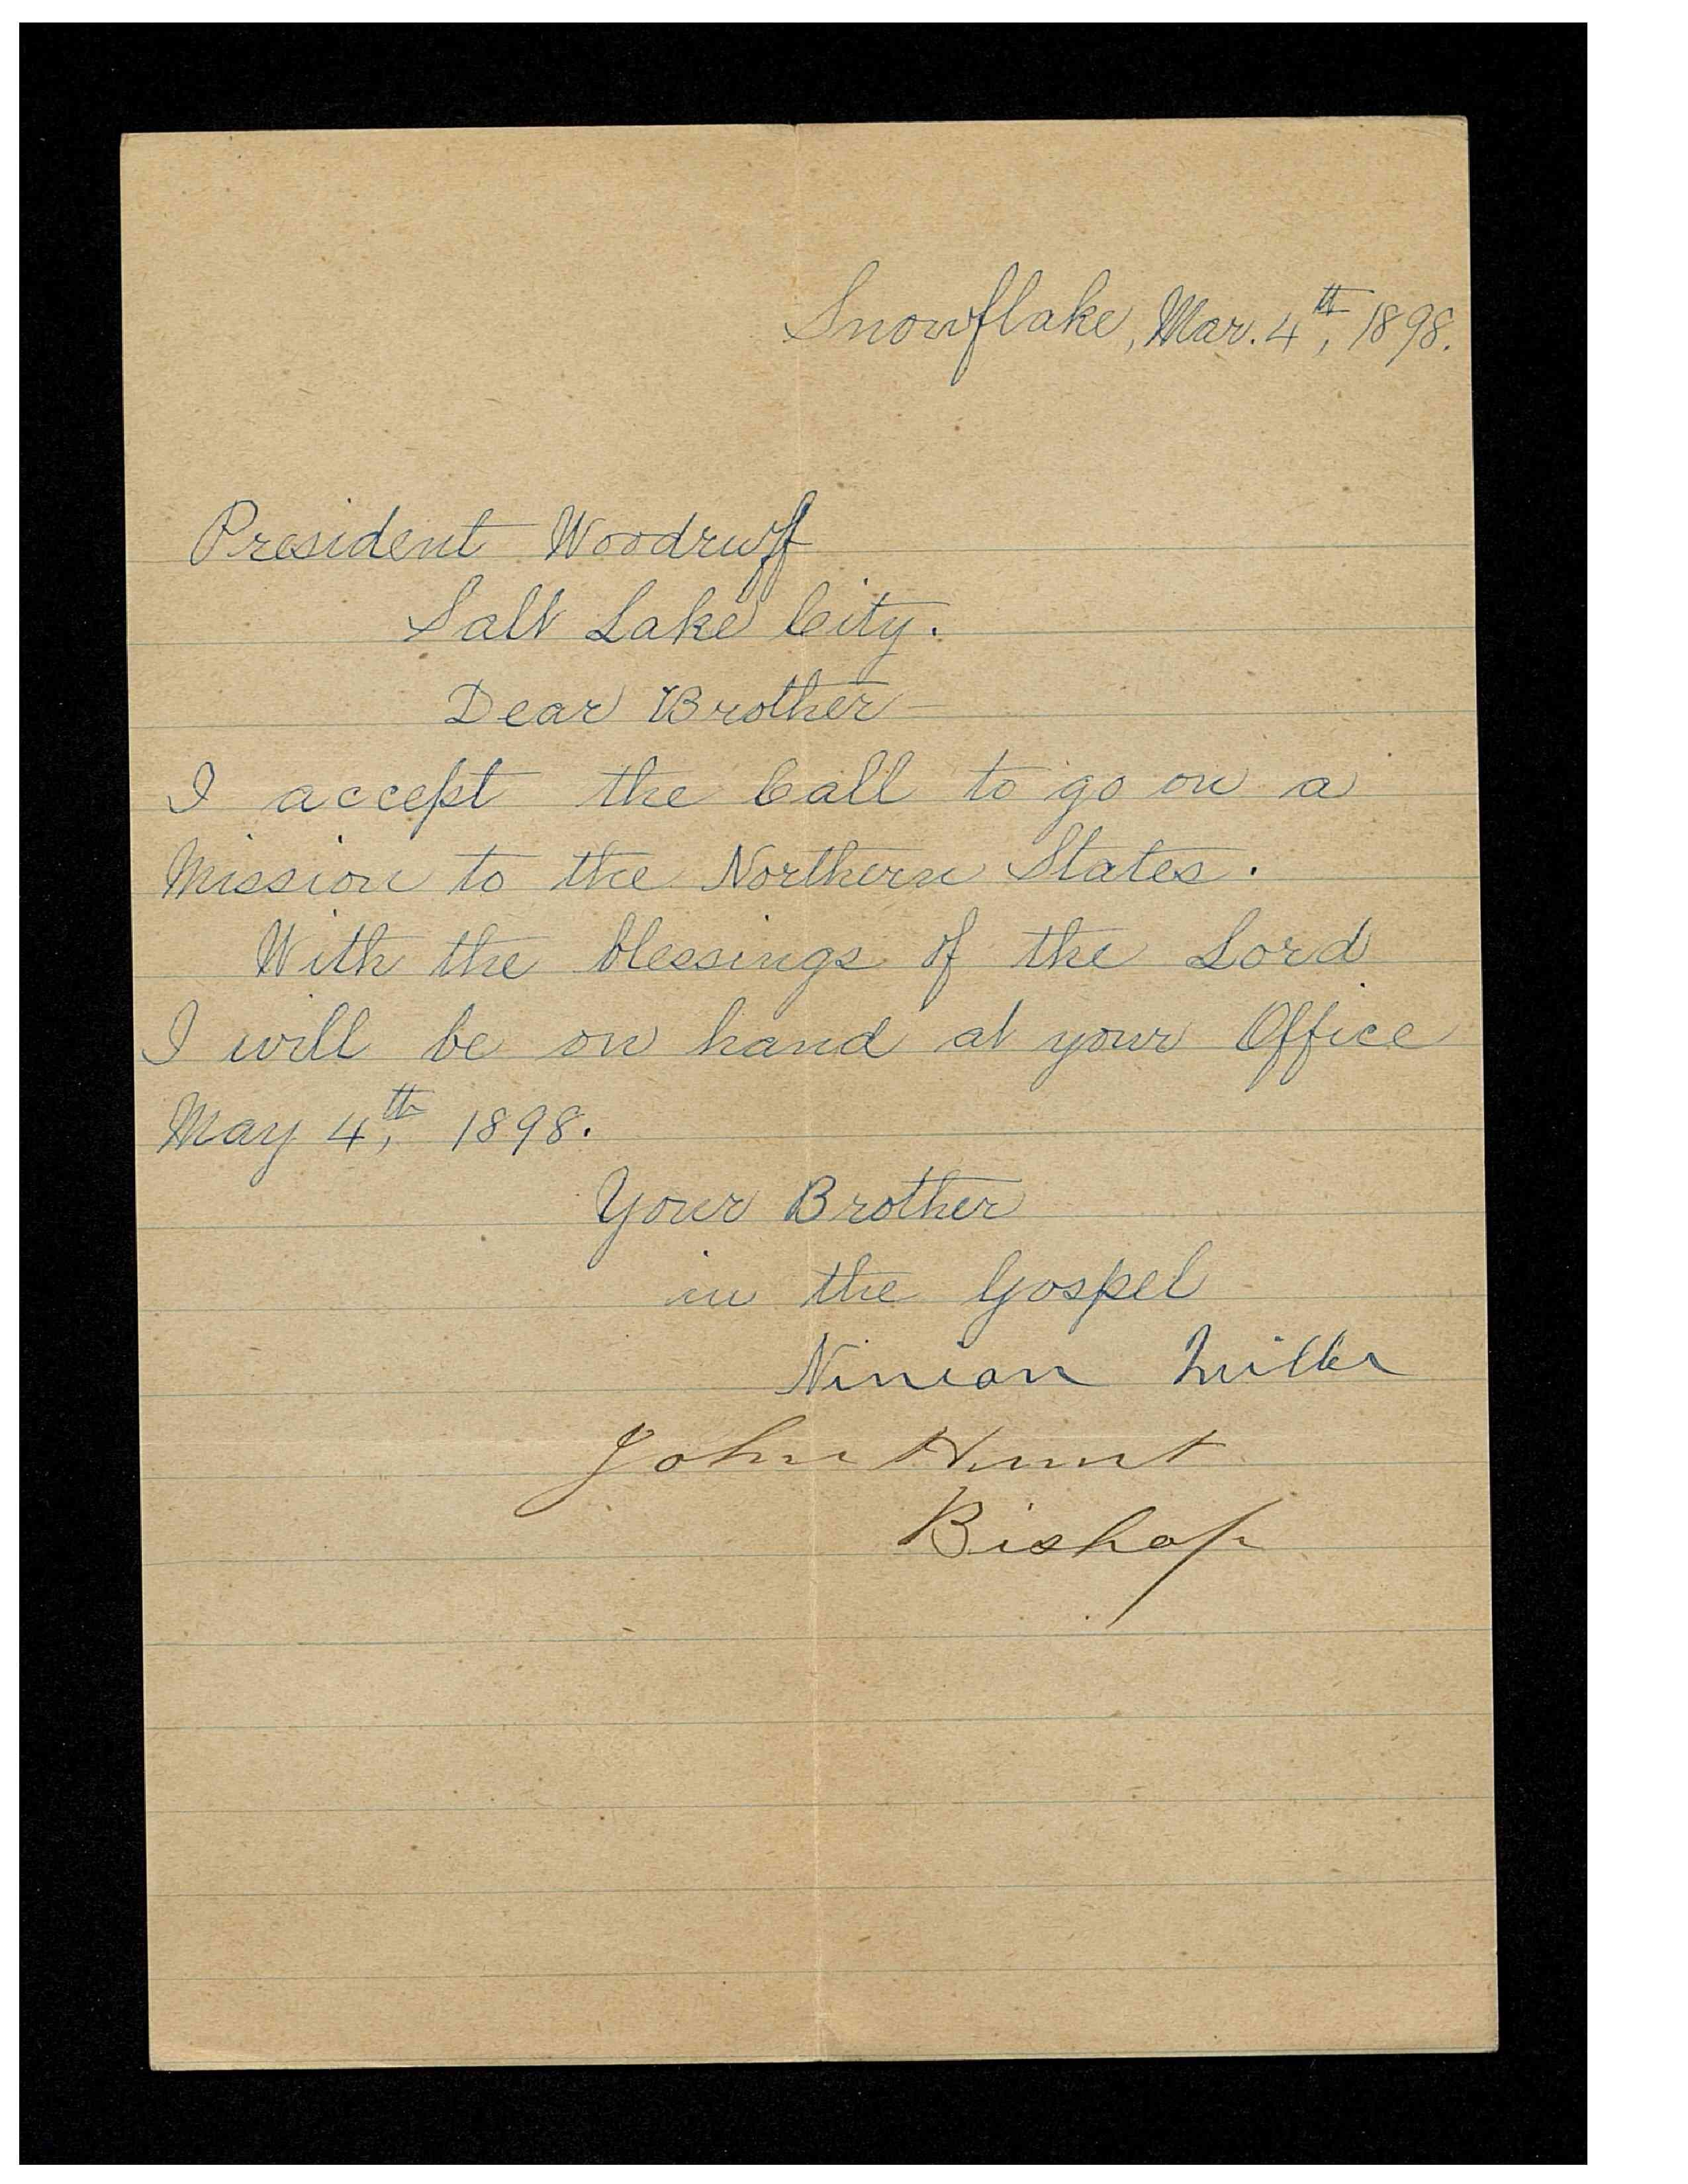 Snowflake, Mar. 4th, 1898.
President Woodruff
Salt Lake City.
Dear Brother—
I accept the Call to go on a
Mission to the Northern States.
With the blessings of the Lord
I will be on hand at your Office
May 4th, 1898.
Your Brother
in the Gospel
Ninian Miller
John Hunt
Bishop